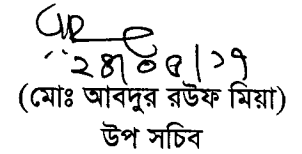 ২৪/০৫/১৭
(মোঃ আবদুর রউফ মিয়া)
উপ সচিব